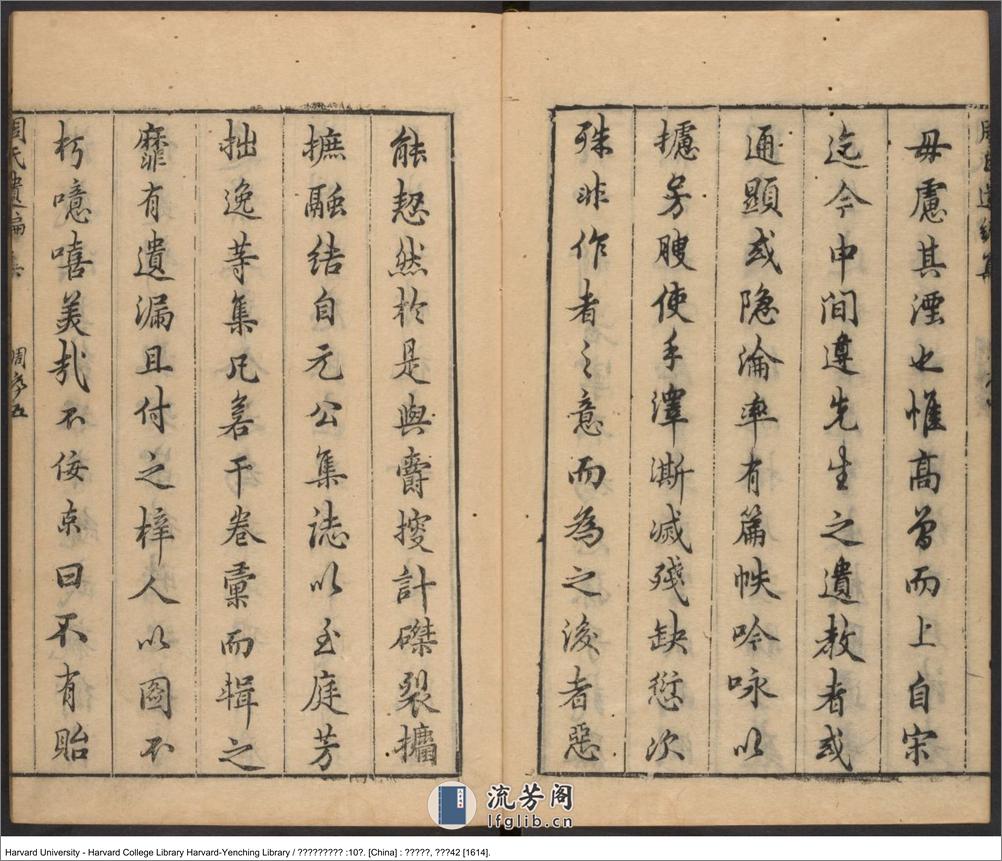 周氏遺
毋慮其湮也惟高曾而上自宋
迄今中間遵先生之遺教者或
通顯或隱淪率有篇帙吟咏以
攄芳腴使手澤澌滅殘缺愆次
殊非作者之意而為之後者惡
能恝然於是與爵授計磔裂攟
摭融結自元公集誌以至庭芳
拙逸等集凡若干卷彙而輯之
靡有遺漏且付之梓人以圖不
朽噫嘻美哉不佞京曰不有貽
周氏遺編集 周序五
流芳阁
lfglib.cn
Harvard University - Harvard College Library Harvard-Yenching Library / ????????? :10?. [China] : ?????, ???42 [1614].